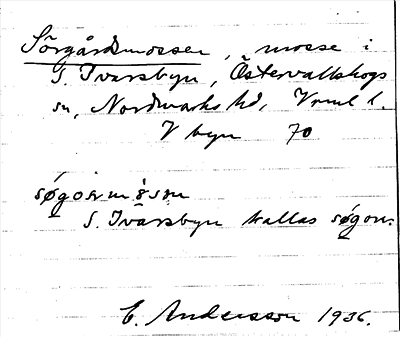 Sörgårdsmossen, mosse i
S. Ivarsbyn, Östervallskogs
sn, Nordmarks hd, Vrml l.
V byn 70
søgosrmὸsṇ
S. Ivarsbyn kallas søgon.
E. Andersson 1936.